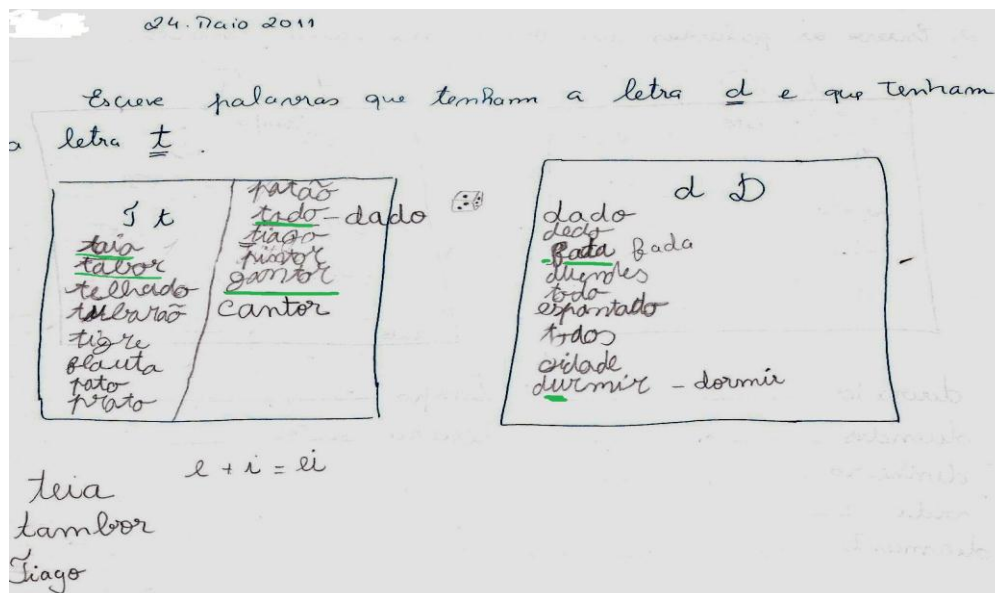 24. Maio 2011
Escreve palavras que tenham a letra d e que tenham
a letra t.
T t
taia
tabor
telhado
tubarão
tigre
flauta
pato
prato
patão
tado - dado
tiago
pintor
gantor
cantor
d D
dado
dedo
fata fada
duendes
todo
espantado
todos
cidade
durmir - dormir
e + i = ei
teia
tambor
Tiago